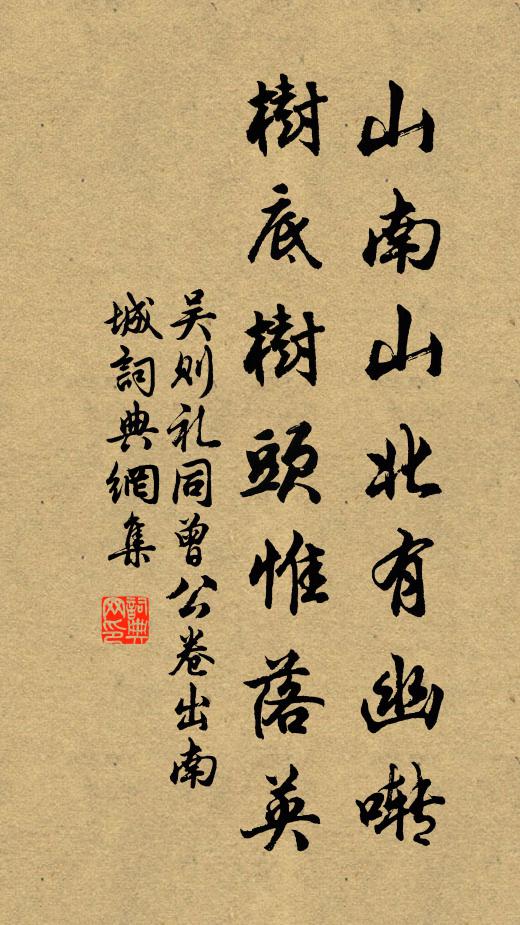 山南山北有幽囀
樹底樹頭惟落英
吴则礼同曾公卷出南
城詞典網集
詞典
网印